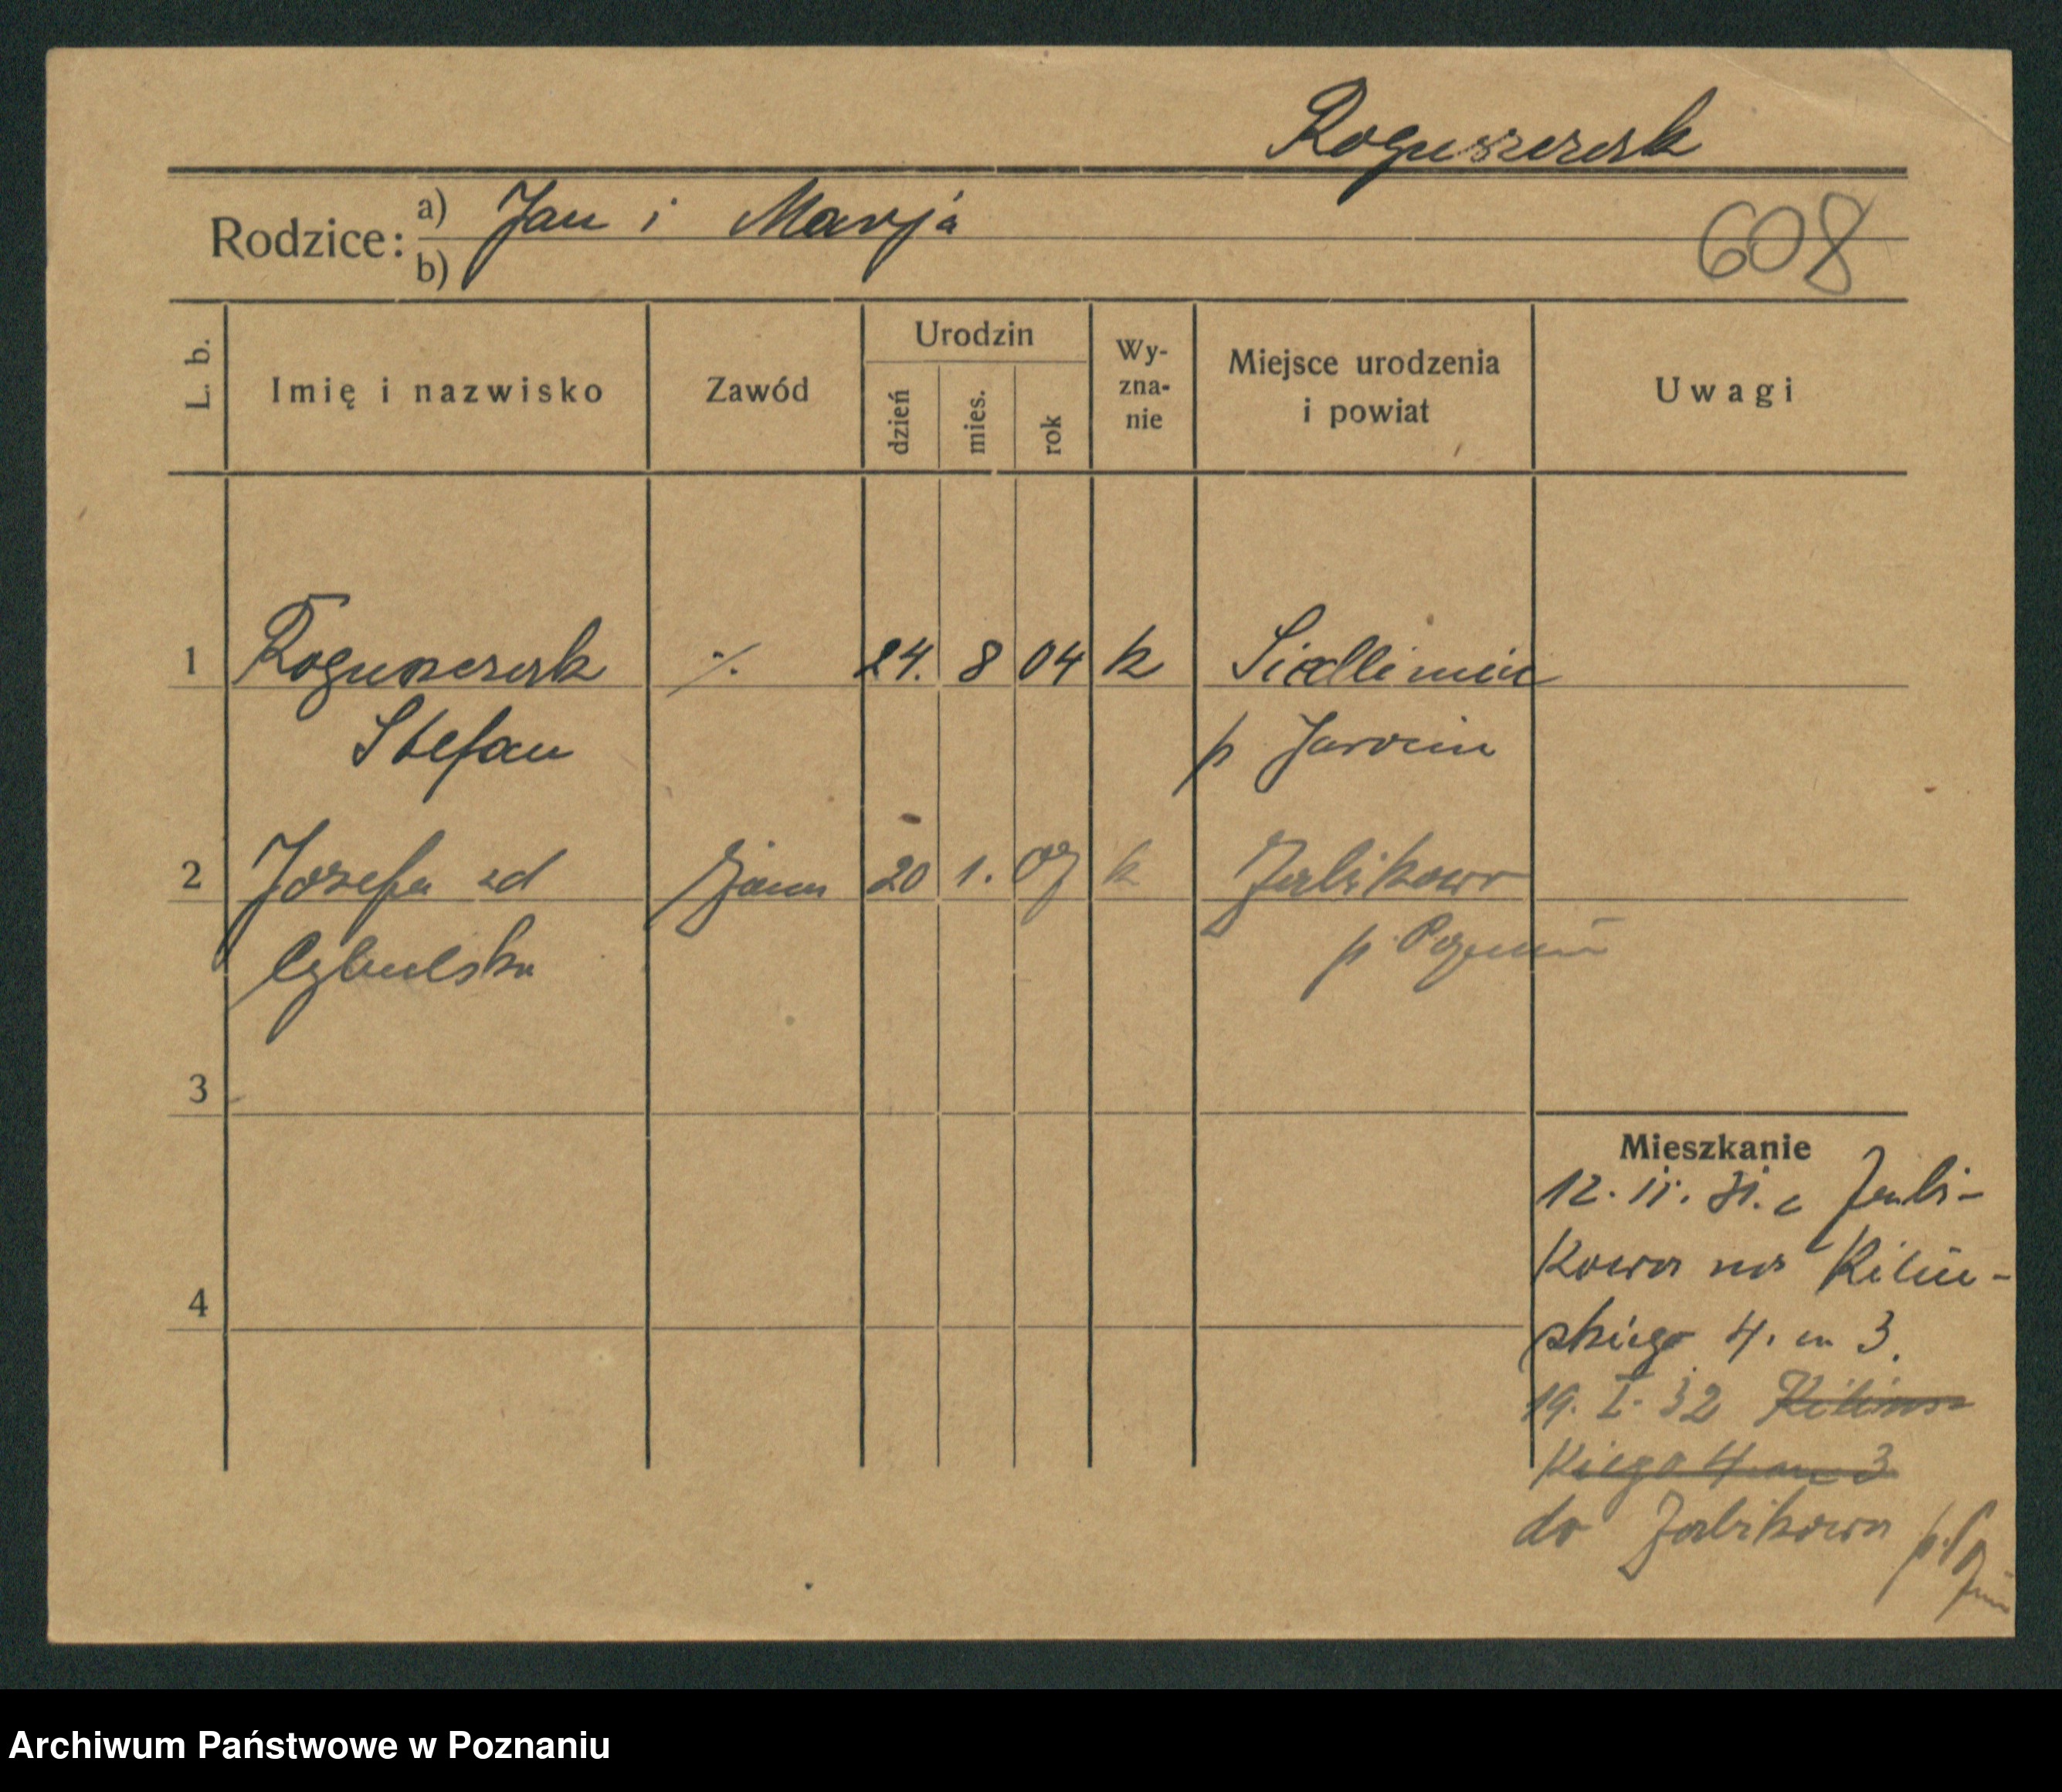 Roguszczak
Rodzice: a) Jan i Marja
b)
608
L. b.
Imię i nazwisko
Zawód
Urodzin
dzień
mies.
rok
Wy-
zna-
nie
Miejsce urodzenia
i powiat
Uwagi
1 Roguszczak ·/. 24. 8 04 k Siedlemin
Stefan p Jarocin
2 Józefa zd żona 20 1. 07 k Żabikowo
Cybulska p Poznań
3
4
Mieszkanie
12. 11. 31. z Żabi-
kowa na Kiliń-
skiego 4. m 3.
19. I. 32 Kilińs
kiego 4 m 3
do Żabikowa p. Poznań
Archiwum Państwowe w Poznaniu